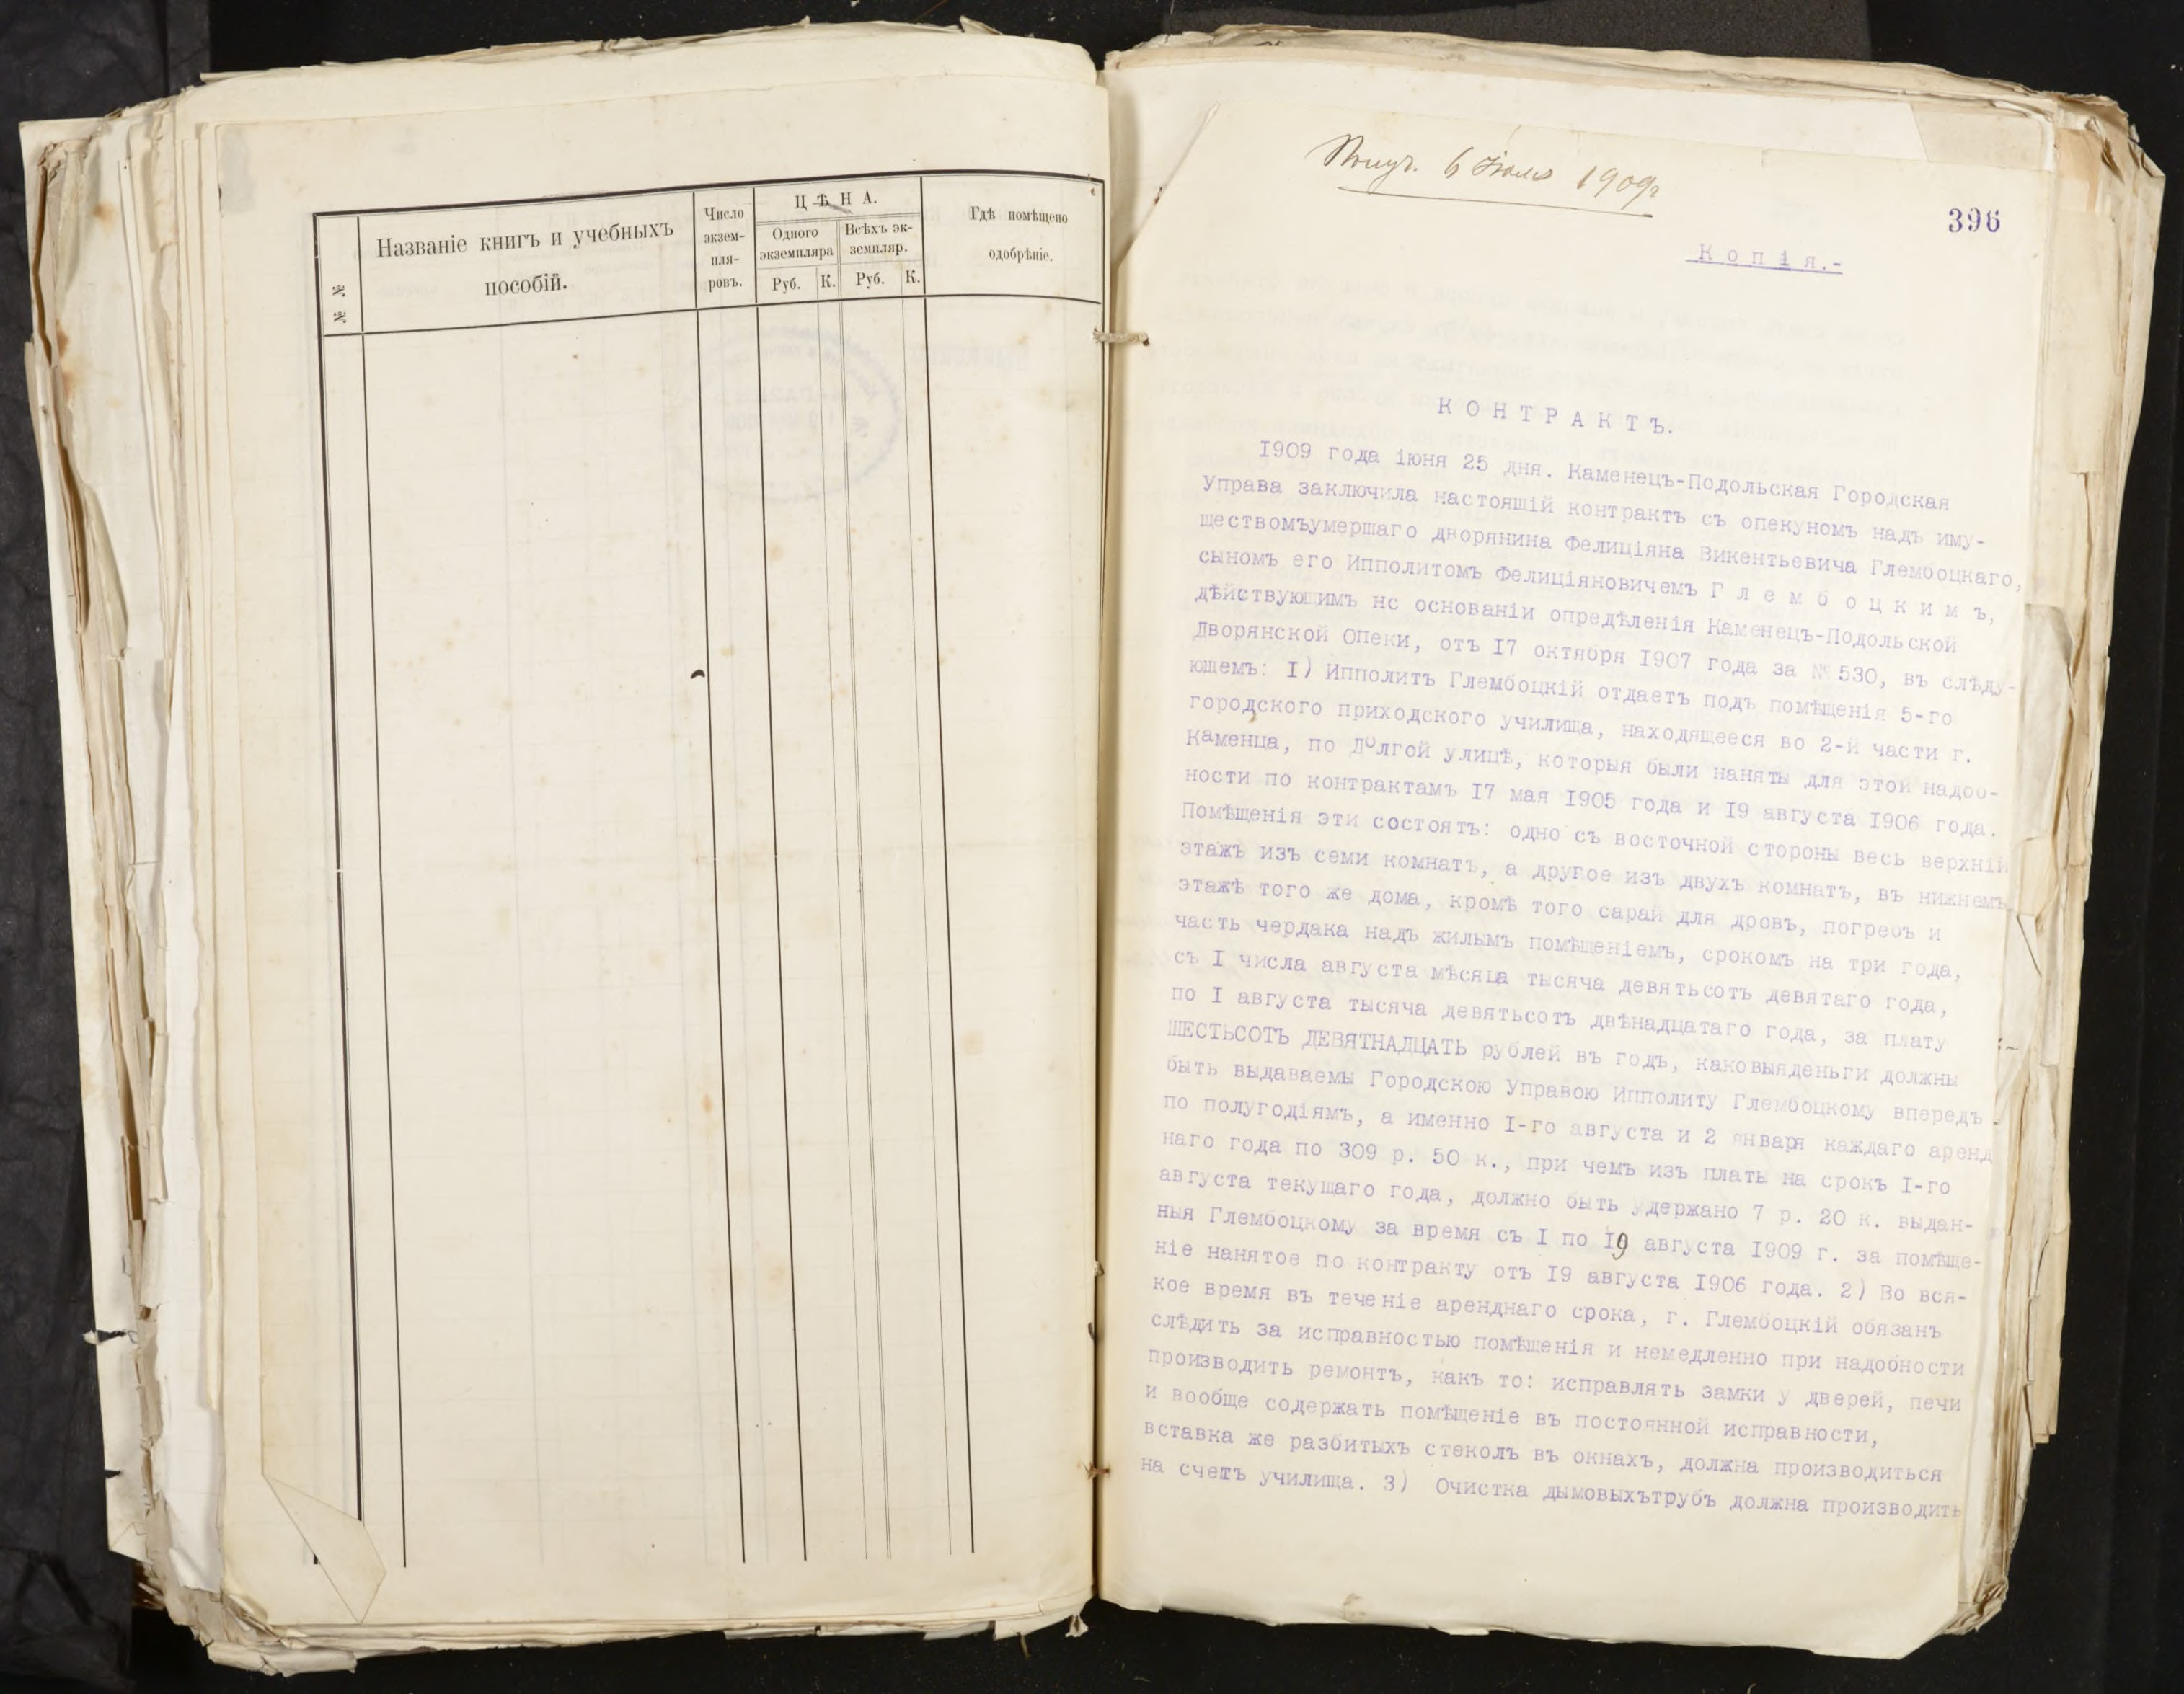 № №
Названіе книгъ и учебныхъ
пособій.
Число
экзем-
пля-
ровъ.
Ц Ѣ Н А.
Одного
экземпляра
Всѣхъ эк-
земпляр.
Руб.
К.
Руб.
К.
Гдѣ помѣщено
одобрѣніе.
6 Іюля 1909г
396
К о п і я.-
К О Н Т Р А К Т Ъ.
I909 года іюня 25 дня. Каменецъ-Подольская Городская
Управа заключила настоящій контрактъ съ опекуномъ надъ иму-
ществомъумершаго дворянина Фелиціяна Викентьевича Глембоцкаго,
сыномъ его Ипполитомъ Фелиціяновичемъ Г л е м б о ц к и м ъ,
дѣйствующимъ нс основаніи опредѣленія Каменецъ-Подольской
Дворянской Опеки, отъ I7 октября I907 года за № 530, въ слѣду-
ющемъ: I) Ипполитъ Глембоцкій отдаетъ подъ помѣщенія 5-го
городского приходского училища, находящееся во 2-й части г.
Каменца, по Долгой улицѣ, которыя были наняты для этой надоб-
ности по контрактамъ I7 мая I905 года и I9 августа I906 года.
Помѣщенія эти состоятъ: одно съ восточной стороны весь верхній
этажъ изъ семи комнатъ, а другое изъ двухъ комнатъ, въ нижнемъ
этажѣ того же дома, кромѣ того сарай для дровъ, погребъ и
часть чердака надъ жилымъ помѣщеніемъ, срокомъ на три года,
съ I числа августа мѣсяца тысяча девятьсотъ девятаго года,
по I августа тысяча девятьсотъ двѣнадцатаго года, за плату
ШЕСТЬСОТЪ ДЕВЯТНАДЦАТЬ рублей въ годъ, каковыяденьги должны
быть выдаваемы Городскою Управою Ипполиту Глембоцкому впередъ
по полугодіямъ, а именно I-го августа и 2 января каждаго аренд
наго года по 309 р. 50 к., при чемъ изъ платы на срокъ I-го
августа текущаго года, должно быть удержано 7 р. 20 к. выдан-
ныя Глембоцкому за время съ I по I9 августа I909 г. за помѣще-
ніе нанятое по контракту отъ I9 августа I906 года. 2) Во вся-
кое время въ теченіе аренднаго срока, г. Глембоцкій обязанъ
слѣдить за исправностью помѣщенія и немедленно при надобности
производить ремонтъ, какъ то: исправлять замки у дверей, печи
и вообще содержать помѣщеніе въ постоянной исправности,
вставка же разбитыхъ стеколъ въ окнахъ, должна производиться
на счетъ училища. 3) Очистка дымовыхътрубъ должна производить